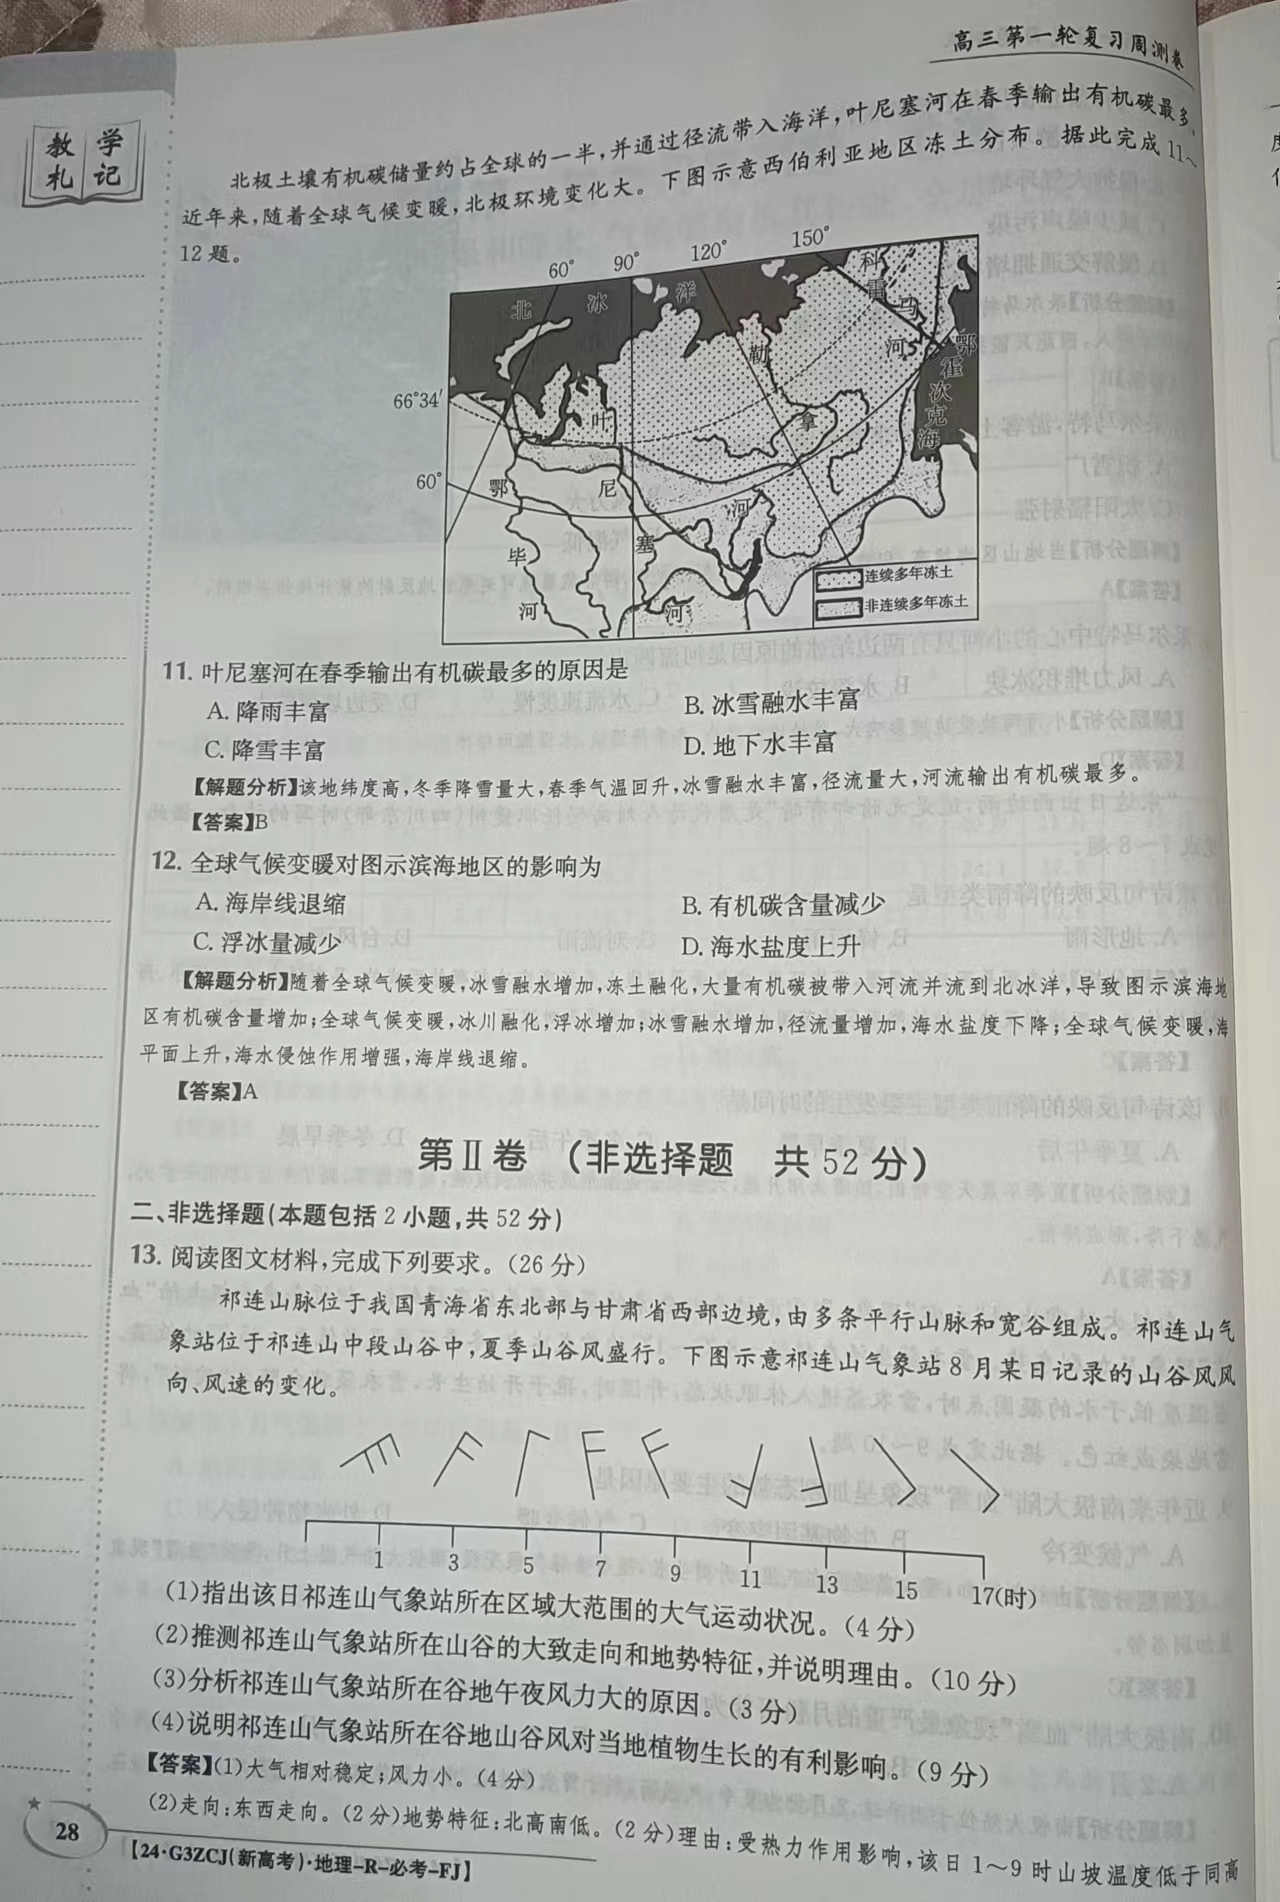 高三第一轮复习周测卷
教学
札记
北极土壤有机碳储量约占全球的一半,并通过径流带入海洋,叶尼塞河在春季输出有机碳最多。
近年来,随着全球气候变暖,北极环境变化大。下图示意西伯利亚地区冻土分布。据此完成11~
12题。
60° 90° 120° 150°
北冰洋
科雷马河
勒拿河
鄂霍次克海
66°34′
60°
叶尼塞河
鄂毕河
连续多年冻土
非连续多年冻土
11. 叶尼塞河在春季输出有机碳最多的原因是
A. 降雨丰富 B. 冰雪融水丰富
C. 降雪丰富 D. 地下水丰富
【解题分析】该地纬度高,冬季降雪量大,春季气温回升,冰雪融水丰富,径流量大,河流输出有机碳最多。
【答案】B
12. 全球气候变暖对图示滨海地区的影响为
A. 海岸线退缩 B. 有机碳含量减少
C. 浮冰量减少 D. 海水盐度上升
【解题分析】随着全球气候变暖,冰雪融水增加,冻土融化,大量有机碳被带入河流并流到北冰洋,导致图示滨海地
区有机碳含量增加;全球气候变暖,冰川融化,浮冰增加;冰雪融水增加,径流量增加,海水盐度下降;全球气候变暖,海
平面上升,海水侵蚀作用增强,海岸线退缩。
【答案】A
第Ⅱ卷 (非选择题 共52分)
二、非选择题(本题包括2小题,共52分)
13. 阅读图文材料,完成下列要求。(26分)
祁连山脉位于我国青海省东北部与甘肃省西部边境,由多条平行山脉和宽谷组成。祁连山气
象站位于祁连山中段山谷中,夏季山谷风盛行。下图示意祁连山气象站8月某日记录的山谷风风
向、风速的变化。
1 3 5 7 9 11 13 15 17(时)
(1)指出该日祁连山气象站所在区域大范围的大气运动状况。(4分)
(2)推测祁连山气象站所在山谷的大致走向和地势特征,并说明理由。(10分)
(3)分析祁连山气象站所在谷地午夜风力大的原因。(3分)
(4)说明祁连山气象站所在谷地山谷风对当地植物生长的有利影响。(9分)
【答案】(1)大气相对稳定;风力小。(4分)
(2)走向:东西走向。(2分)地势特征:北高南低。(2分)理由:受热力作用影响,该日1~9时山坡温度低于同高
28
【24·G3ZCJ(新高考)·地理-R-必考-FJ】